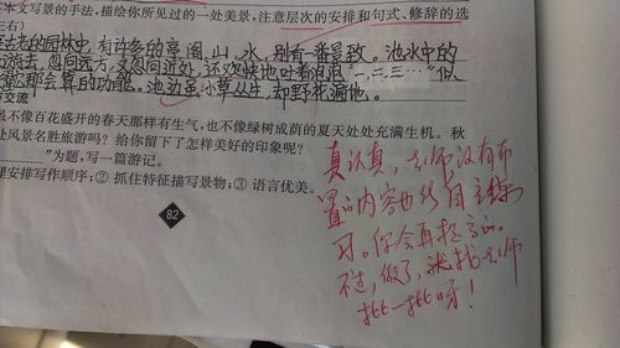 本文写景的手法,描绘你所见过的一处美景,注意层次的安排和句式、修辞的选
左右)
古老的园林中,有许多的亭、阁、山、水,别有一番景致。池水中的
游去,忽向远方,又忽向近处,还欢快地吐着泡泡“一,二,三…”似
那会算的功能。池边虽小草丛生,却野花遍地。
交流
虽不像百花盛开的春天那样有生气,也不像绿树成荫的夏天处处充满生机。秋
处风景名胜旅游吗?给你留下了怎样美好的印象呢?
________”为题,写一篇游记。
理安排写作顺序;② 抓住特征描写景物;③ 语言优美。
82
真认真,老师没有布
置的内容也能自主练
习。你会再提高的。
不过,做了,就找老师
批一批呀!